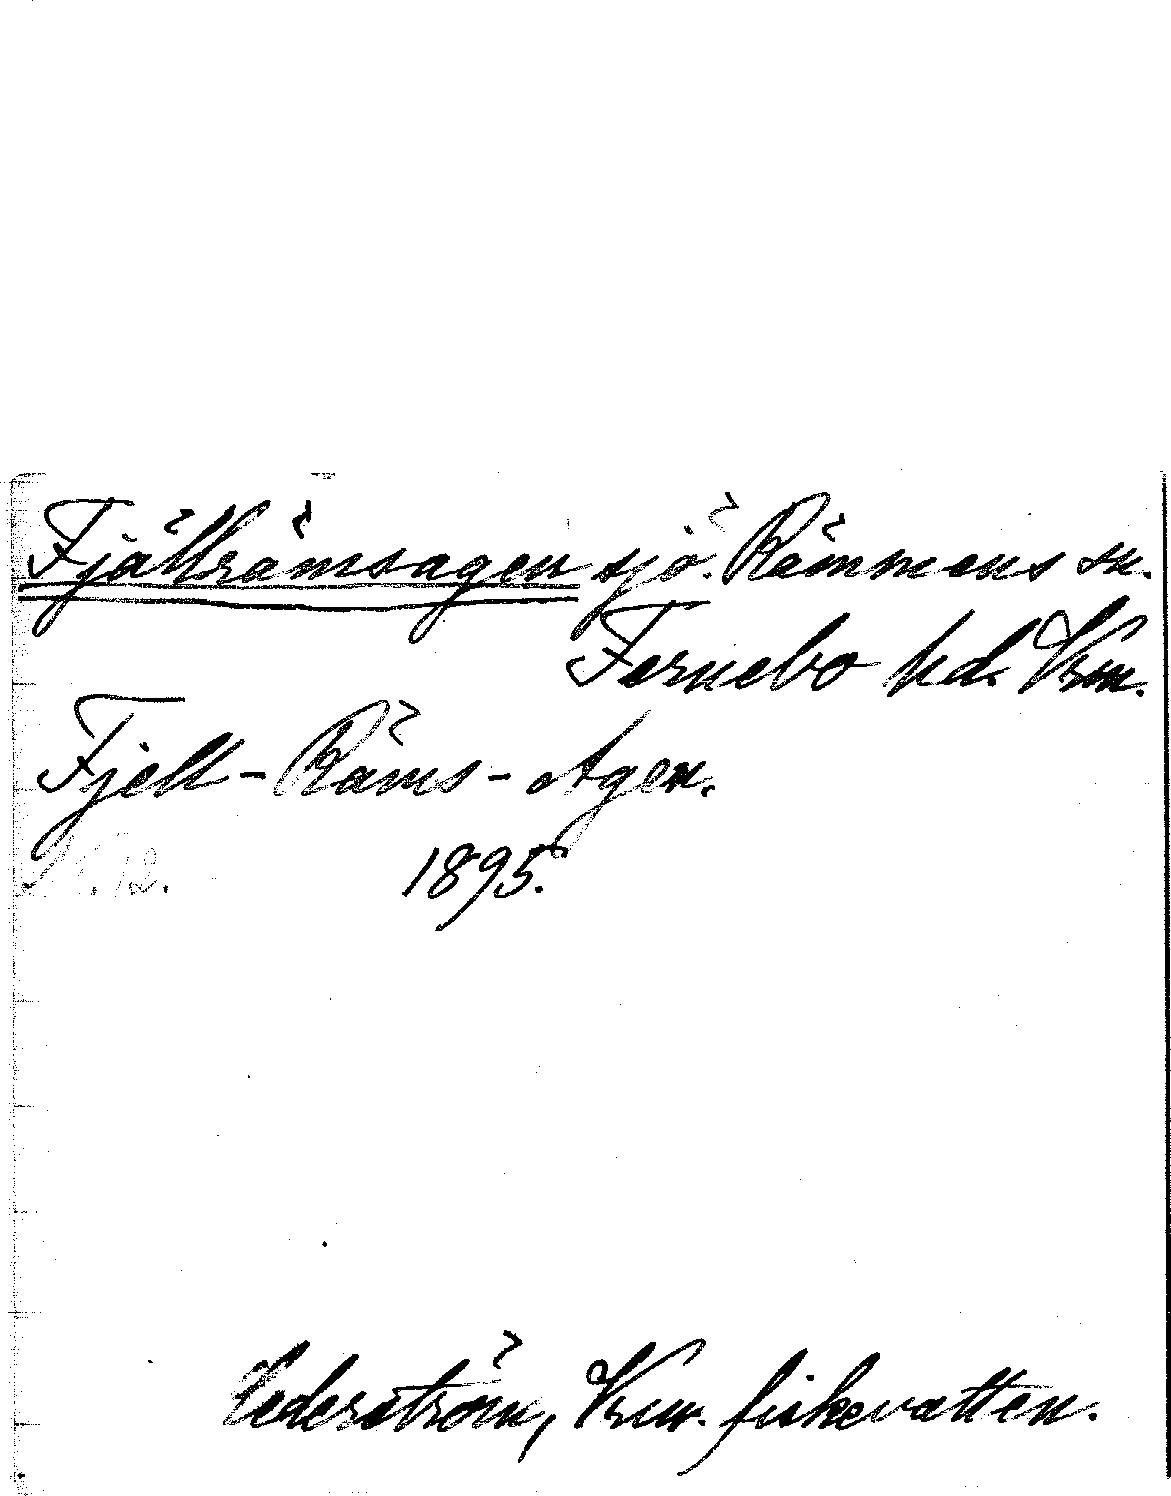 Fjällrämsagen sjö. Rämmens sn.
Fernebo hd. Vrm.
Fjell-Räms-Agen.
1895.
Cederström, Vrm. fiskevatten.